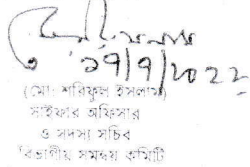 ১৭/৭/২০২২
(মো: শরিফুল ইসলাম)
সাইফার অফিসার
ও সদস্য সচিব
বিভাগীয় সমন্বয় কমিটি